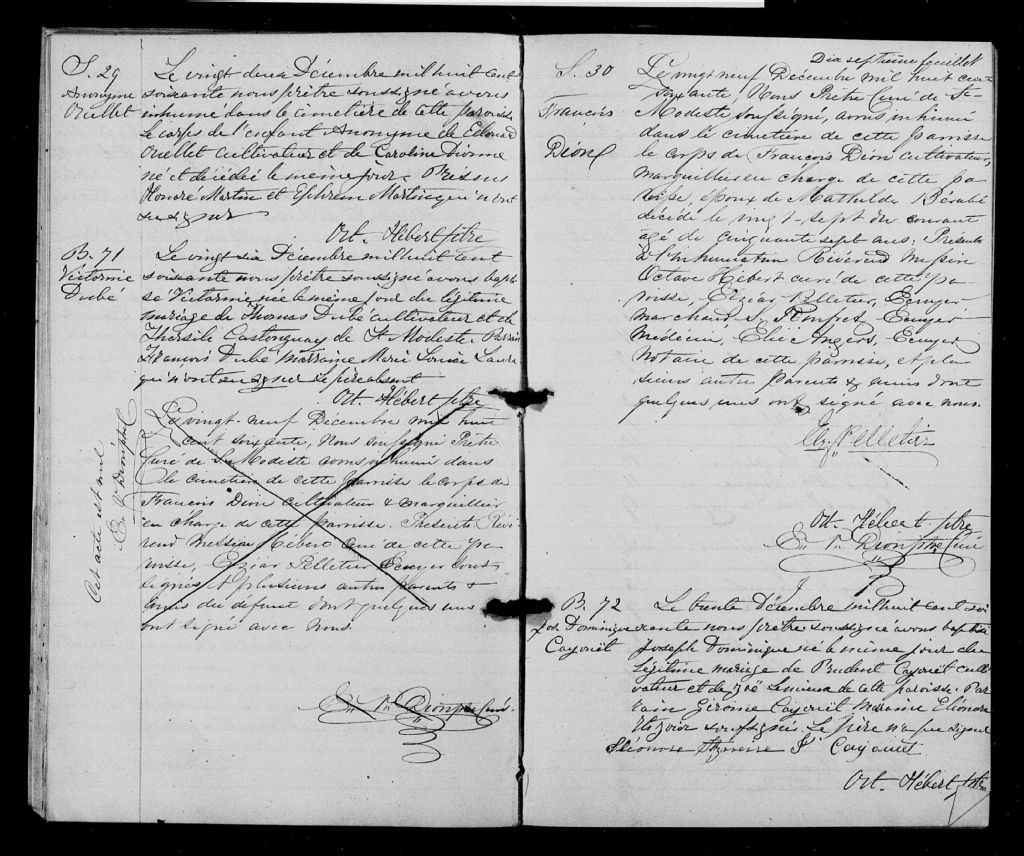 S. 29
Anonyme
Ouellet
Le vingt deux Décembre mil huit cent
soixante nous prêtre soussigné avons
inhumé dans le cimetière de cette paroisse
le corps de l'enfant Anonyme de Edouard
Ouellet cultivateur et de Caroline Dionne
né et décédé le même jour. Présens
Honoré Martin et Ephrem Martin qui n'ont
su signer
Oct. Hébert ptre
B. 71
Victorine
Dubé
Le vingt six Décembre mil huit cent
soixante nous prêtre soussigné avons bapti
sé Victorine née le même jour du légitime
mariage de Thomas Dubé cultivateur et de
Tharsile Castonguay de St Modeste. Parrain
Francois Dubé marraine Marie Louise
qui n'ont su signer le père absent
Oct. Hébert ptre
Cet acte est nul
E. V. Dion ptre C
Le vingt-neuf Décembre mil huit
cent soixante, Nous soussigné Prêtre
Curé de St Modeste avons inhumé dans
le cimetière de cette paroisse le corps de
Francois Dion cultivateur & marguillier
en charge de cette paroisse. Présents Révé-
rend Messire Hébert Curé de cette pa-
roisse, Elzéar Pelletier Ecuyer sous-
signés & plusieurs autres parents &
amis du défunt dont quelques uns
ont signé avec nous.
E. V. Dion ptre Curé
Dix septième feuillet
S. 30
Francois
Dion
Le vingt neuf Decembre mil huit cent
soixante, Nous Prêtre Curé de St
Modeste soussigné, avons inhumé
dans le cimetière de cette paroisse
le corps de Francois Dion cultivateur,
marguillier en charge de cette pa-
roisse, époux de Mathilde Bérubé
décédé le vingt-sept du courant
agé de cinquante sept ans; Présents
à l'inhumation Révérend Messire
Octave Hébert curé de cette pa-
roisse, Elzéar Pelletier, Ecuyer
marchand, Ecuyer
Médecin, Elie Angers, Ecuyer
Notaire de cette paroisse, et plu-
sieurs autres Parents & amis dont
quelques unes ont signé avec nous.
Elz. Pelletier
Oct. Hébert ptre
E. V. Dion ptre Curé
B. 72
Jos. Dominique
Cayouet
Le trente Décembre mil huit cent soi
xante nous prêtre soussigné avons baptisé
Joseph Dominique né le même jour du
légitime mariage de Prudent Cayouet culti
vateur et de Zoé Lemieux de cette paroisse. Par
rain Gérome Cayouet marraine Eléonore
soussignés. Le père n'a pu signer
Eléonore J. Cayouet
Oct. Hébert ptre